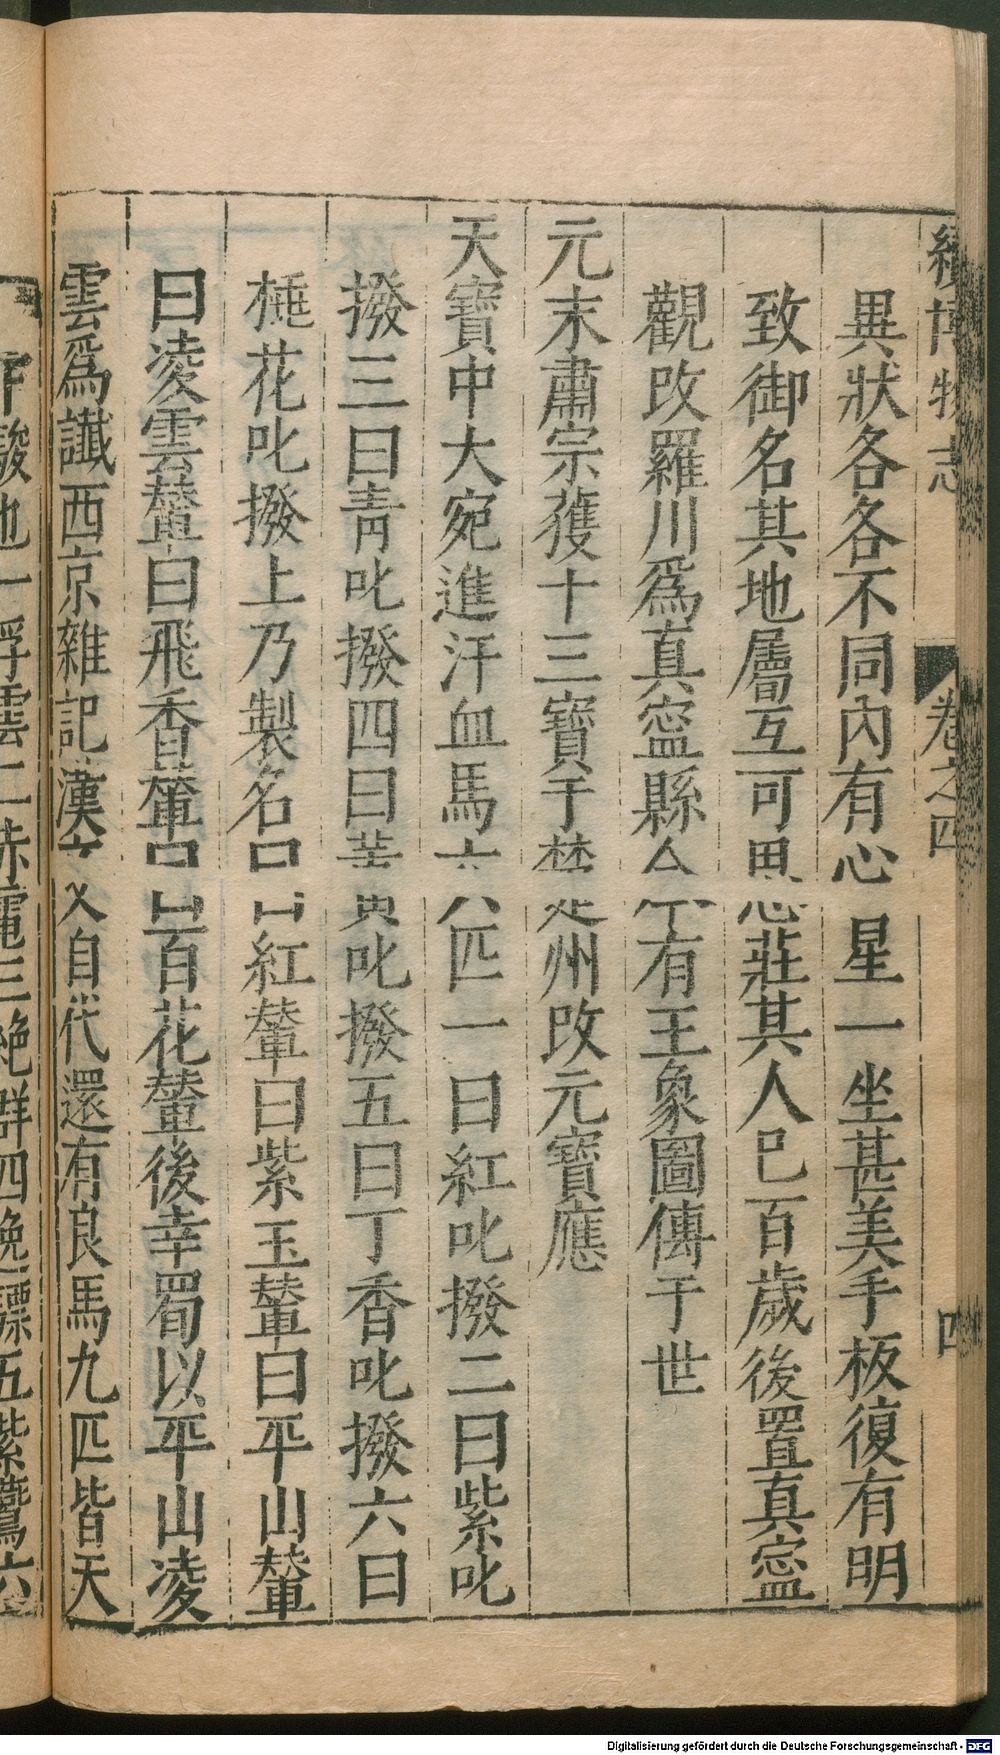 續博物志 卷之四 四
異狀各各不同內有心星一坐甚美手板復有明
致御名其地層互可思莊其人巳百歲後置真寍
觀改羅川爲真寍縣今有王象圖傳于世
元末肅宗獲十三寶于楚州改元寶應
天寶中大宛進汗血馬六匹一曰紅叱撥二曰紫叱
撥三曰靑叱撥四曰黃叱撥五曰丁香叱撥六曰
桃花叱撥上乃製名曰紅輦曰紫玉輦曰平山輦
曰凌雲輦曰飛香輦曰百花輦後幸蜀以平山凌
雲爲讖西京雜記漢文自代還有良馬九匹皆天
下駿也一浮雲二赤電三絕群四逸驃五紫鷰六
Digitalisierung gefördert durch die Deutsche Forschungsgemeinschaft - DFG